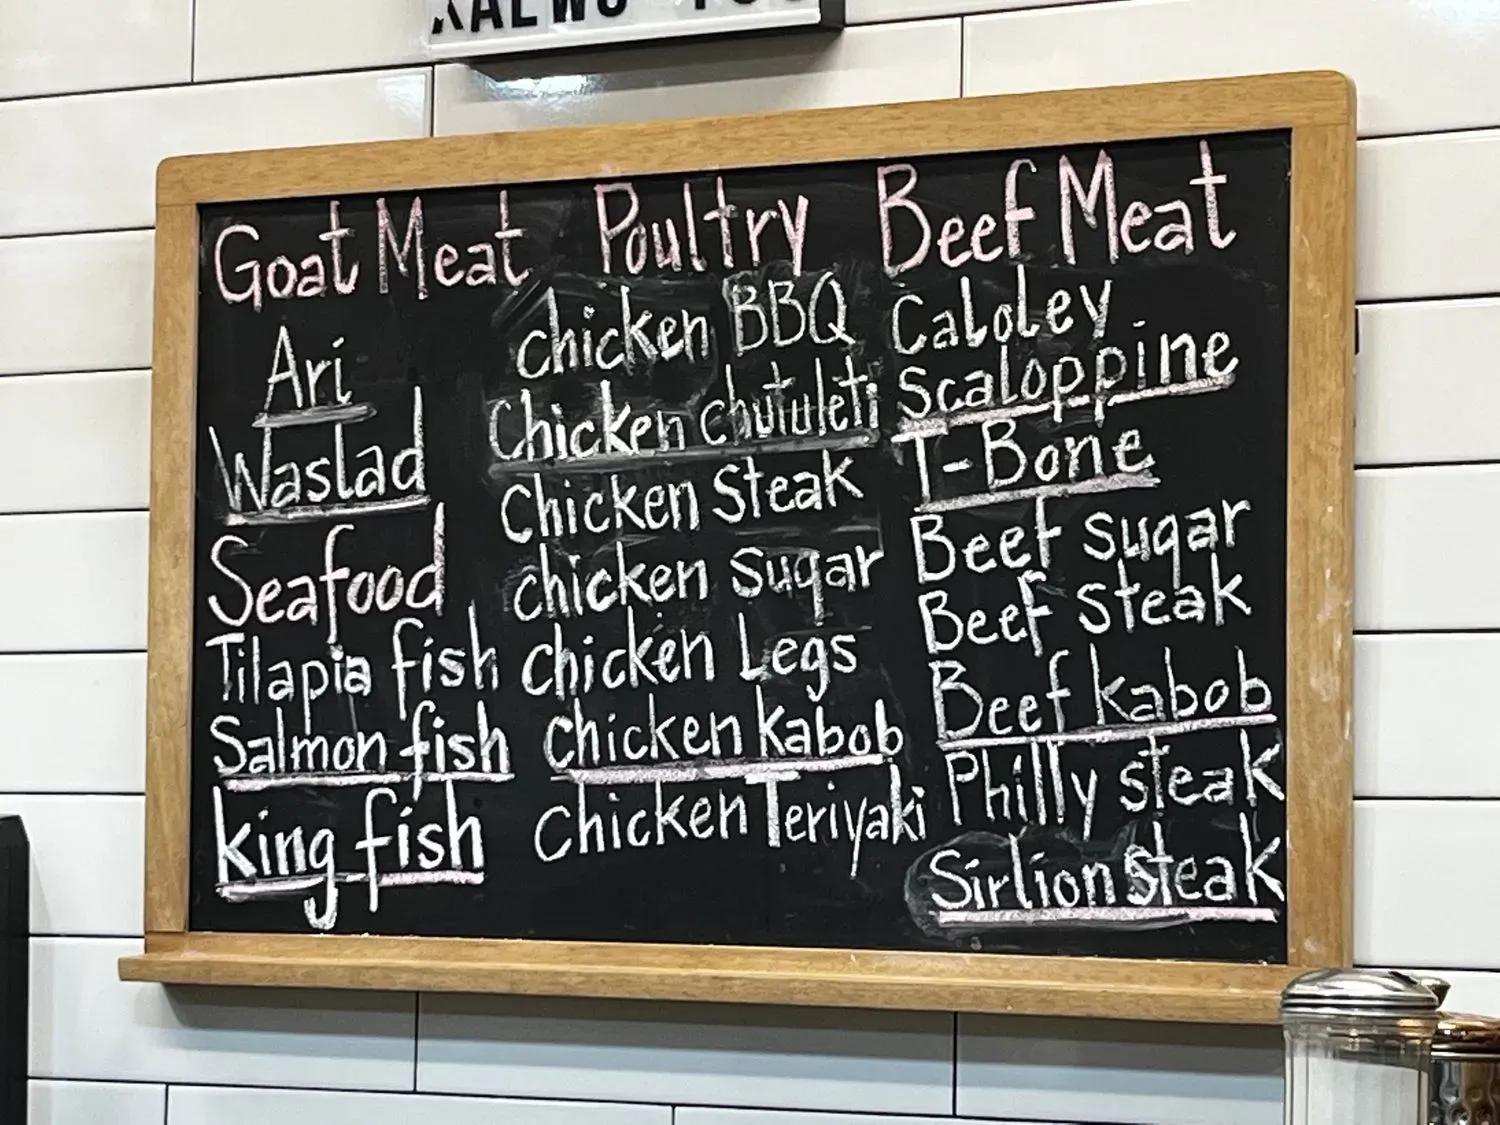 Goat Meat
Ari
Waslad
Seafood
Tilapia fish
Salmon fish
king fish
Poultry
chicken BBQ
Chicken chutuleti
Chicken Steak
chicken Suqar
chicken Legs
chicken kabob
chicken Teriyaki
Beef Meat
Caloley
Scaloppine
T-Bone
Beef suqar
Beef steak
Beef kabob
Philly steak
Sirlion steak